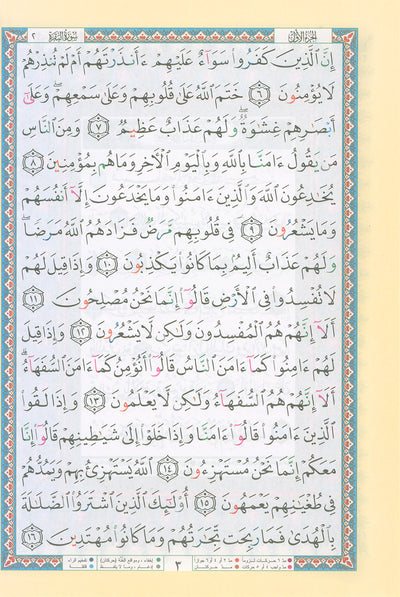 الجزء الأول سورة البقرة ٢
إِنَّ ٱلَّذِينَ كَفَرُوا۟ سَوَآءٌ عَلَيْهِمْ ءَأَنذَرْتَهُمْ أَمْ لَمْ تُنذِرْهُمْ
لَا يُؤْمِنُونَ ٦ خَتَمَ ٱللَّهُ عَلَىٰ قُلُوبِهِمْ وَعَلَىٰ سَمْعِهِمْ ۖ وَعَلَىٰٓ
أَبْصَٰرِهِمْ غِشَٰوَةٌ ۖ وَلَهُمْ عَذَابٌ عَظِيمٌ ٧ وَمِنَ ٱلنَّاسِ
مَن يَقُولُ ءَامَنَّا بِٱللَّهِ وَبِٱلْيَوْمِ ٱلْـَٔاخِرِ وَمَا هُم بِمُؤْمِنِينَ ٨
يُخَٰدِعُونَ ٱللَّهَ وَٱلَّذِينَ ءَامَنُوا۟ وَمَا يَخْدَعُونَ إِلَّآ أَنفُسَهُمْ
وَمَا يَشْعُرُونَ ٩ فِى قُلُوبِهِم مَّرَضٌ فَزَادَهُمُ ٱللَّهُ مَرَضًا ۖ
وَلَهُمْ عَذَابٌ أَلِيمٌۢ بِمَا كَانُوا۟ يَكْذِبُونَ ١٠ وَإِذَا قِيلَ لَهُمْ
لَا تُفْسِدُوا۟ فِى ٱلْأَرْضِ قَالُوٓا۟ إِنَّمَا نَحْنُ مُصْلِحُونَ ١١
أَلَآ إِنَّهُمْ هُمُ ٱلْمُفْسِدُونَ وَلَٰكِن لَّا يَشْعُرُونَ ١٢ وَإِذَا قِيلَ
لَهُمْ ءَامِنُوا۟ كَمَآ ءَامَنَ ٱلنَّاسُ قَالُوٓا۟ أَنُؤْمِنُ كَمَآ ءَامَنَ ٱلسُّفَهَآءُ ۗ
أَلَآ إِنَّهُمْ هُمُ ٱلسُّفَهَآءُ وَلَٰكِن لَّا يَعْلَمُونَ ١٣ وَإِذَا لَقُوا۟
ٱلَّذِينَ ءَامَنُوا۟ قَالُوٓا۟ ءَامَنَّا وَإِذَا خَلَوْا۟ إِلَىٰ شَيَٰطِينِهِمْ قَالُوٓا۟ إِنَّا
مَعَكُمْ إِنَّمَا نَحْنُ مُسْتَهْزِءُونَ ١٤ ٱللَّهُ يَسْتَهْزِئُ بِهِمْ وَيَمُدُّهُمْ
فِى طُغْيَٰنِهِمْ يَعْمَهُونَ ١٥ أُو۟لَٰٓئِكَ ٱلَّذِينَ ٱشْتَرَوُا۟ ٱلضَّلَٰلَةَ
بِٱلْهُدَىٰ فَمَا رَبِحَت تِّجَٰرَتُهُمْ وَمَا كَانُوا۟ مُهْتَدِينَ ١٦
مد ٦ حركات لزوماً مد ٢ أو ٤ أو ٦ جوازاً إخفاء، ومواقع الغنة (حركتان) تفخيم الراء
مد واجب ٤ أو ٥ حركات مد حركتان إدغام، وما لا يلفظ قلقلة
٣